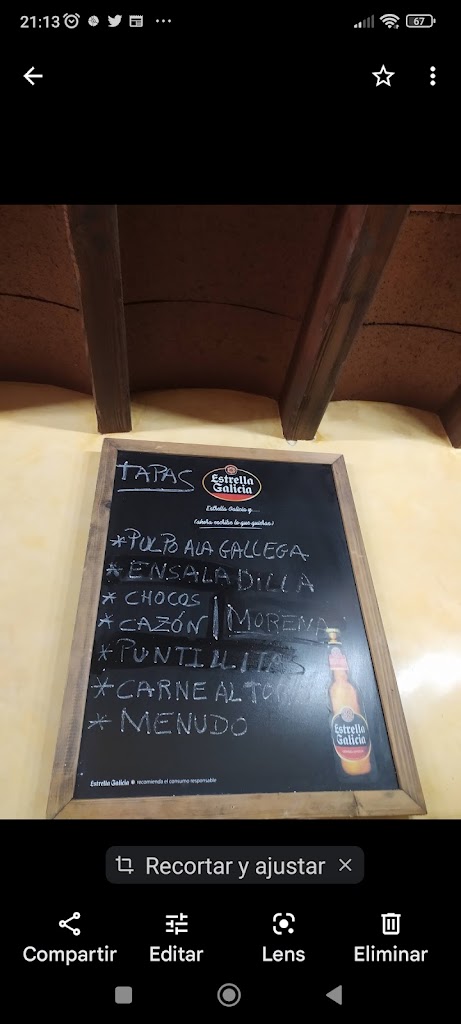 21:13
67
TAPAS
Estrella
Galicia
Estrella Galicia y...
(ahora escribe lo que quieras)
*PULPO A LA GALLEGA
* ENSALADILLA
* CHOCOS
* CAZÓN | MORENA
* PUNTILLITAS
* CARNE AL
* MENUDO
Estrella
Galicia
Estrella Galicia recomienda el consumo responsable
Recortar y ajustar
Compartir Editar Lens Eliminar